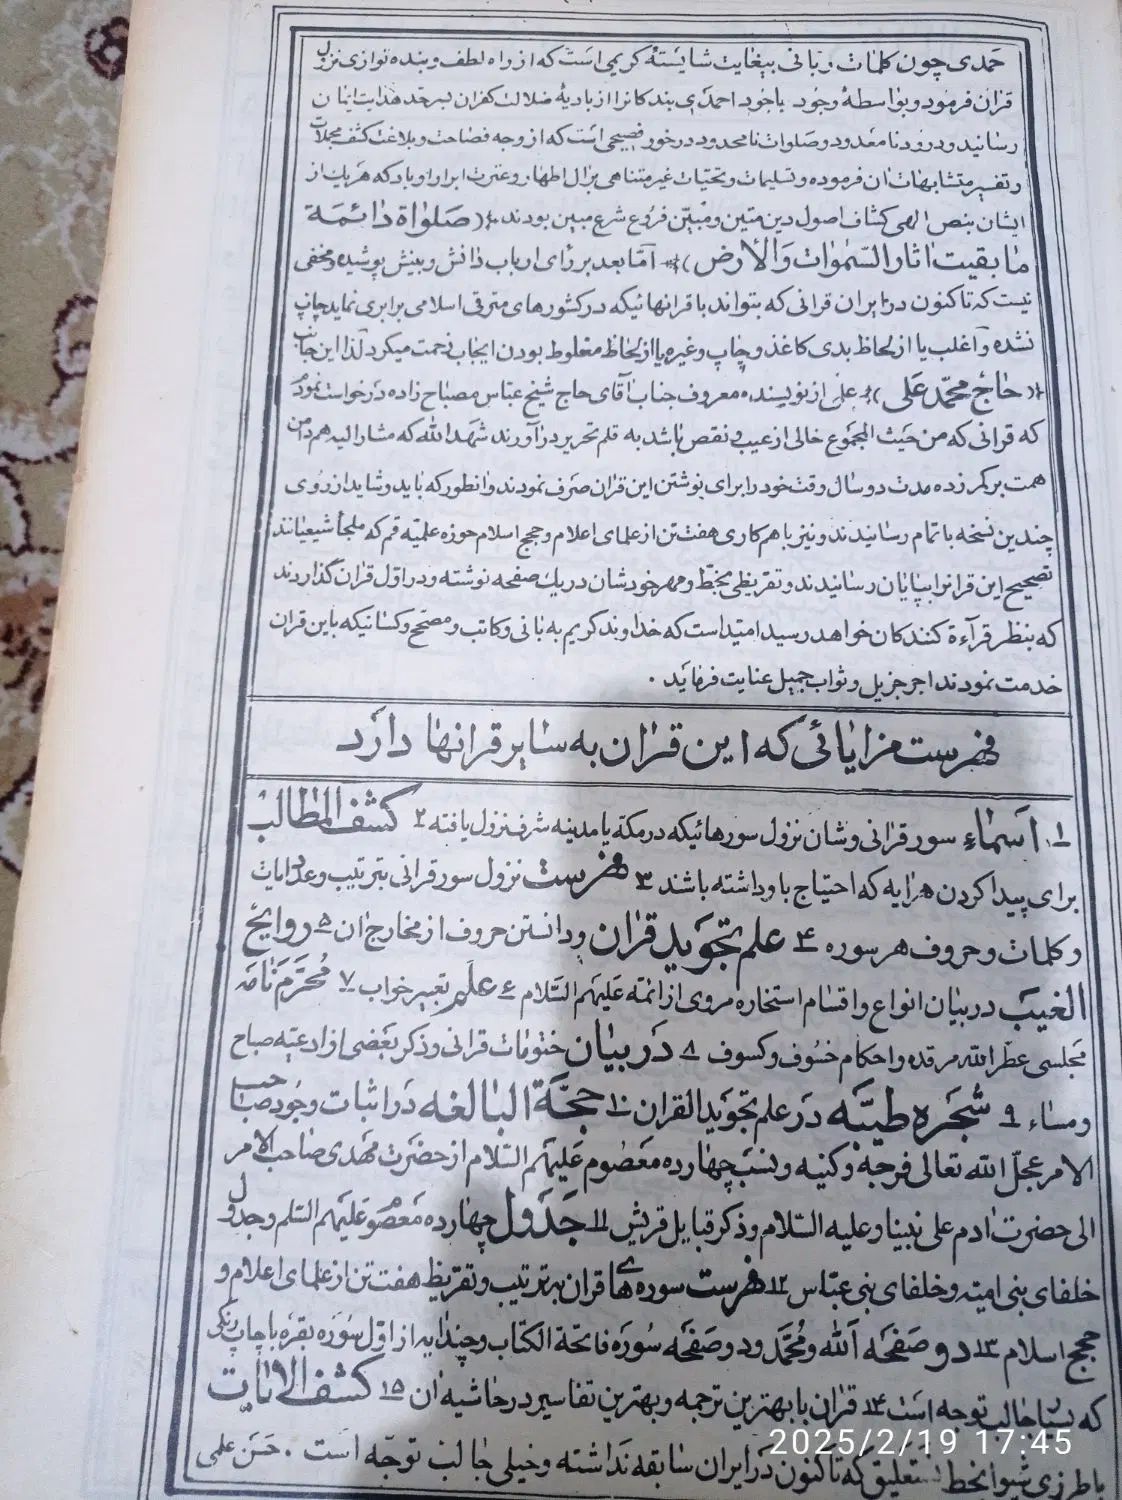 حمدی چون کلمات ربانی بیغایت شایستهٔ کریمی است که از راه لطف و بنده نوازی نزول
قران فرمود و بواسطهٔ وجود باجود احمدی بندکانرا از بادیهٔ ضلالت کفران بسرحد هدایت ایمان
رسانید و درود نامعدود و صلوات نامحدود در خور فصیحی است که از وجه فصاحت و بلاغت کشف مجملات
و تفسیر متشابهات ان فرموده و تسلیمات و تحیات غیر متناهی بر ال اطهار و عترت ابرار او باد که هر یک از
ایشان بنص الهی کشاف اصول دین متین و مبین فروع شرع مبین بودند (صلواة دائمة
ما بقیت اثار السموات والارض) اما بعد بر رای ارباب دانش و بینش پوشیده و مخفی
نیست که تاکنون در ایران قرانی که بتواند با قرانهائیکه در کشورهای مترقی اسلامی برابری نماید چاپ
نشده و اغلب یا از لحاظ بدی کاغذ و چاپ و غیره یا از لحاظ مغلوط بودن ایجاب زحمت میکرد لذا این جانب
(حاج محمد علی) علمی از نویسنده معروف جناب آقای حاج شیخ عباس مصباح زاده درخواست نمود
که قرانی که من حیث المجموع خالی از عیب و نقص باشد به قلم تحریر درآورند شهد الله که مشار الیه هم دامن
همت بر کمر زده مدت دو سال وقت خود را برای نوشتن این قران صرف نمودند و انطور که باید و شاید از روی
چندین نسخه باتمام رسانیدند و نیز با همکاری هفت تن از علمای اعلام و حجج اسلام حوزه علمیه قم که ملجأ شیعیانند
تصحیح این قرانرا بپایان رسانیدند و تقریظی بخط و مهر خودشان در یک صفحه نوشته و در اول قران گذاردند
که بنظر قرآءة کنندکان خواهد رسید امید است که خداوند کریم به بانی و کاتب و مصحح و کسانیکه باین قران
خدمت نمودند اجر جزیل و ثواب جمیل عنایت فرماید .
فهرست مزایائی که این قران به سایر قرانها دارد
۱ اسماء سور قرانی و شان نزول سورهائیکه در مکه یا مدینه شرف نزول یافته ۲ کشف المطالب
برای پیدا کردن هر ایه که احتیاج باو داشته باشند ۳ فهرست نزول سور قرانی بترتیب و عدد ایات
و کلمات و حروف هر سوره ۴ علم تجوید قران و دانستن حروف از مخارج ان ۵ روایح
الغیب در بیان انواع و اقسام استخاره مروی از ائمه علیهم السلام ۶ علم تعبیر خواب ۷ محرم نامه
مجلسی عطر الله مرقده و احکام خسوف و کسوف ۸ در بیان ختومات قرانی و ذکر بعضی از ادعیه صباح
و مساء ۹ شجره طیبه در علم تجوید القران ۱۰ حجة البالغه در اثبات وجود صاحب
الامر عجل الله تعالی فرجه و کنیه و نسب چهارده معصوم علیهم السلام از حضرت مهدی صاحب الامر
الی حضرت ادم علی نبینا و علیه السلام و ذکر قبایل قریش ۱۱ جدول چهارده معصوم علیهم السلم و جدول
خلفای بنی امیه و خلفای بنی عباس ۱۲ فهرست سوره های قران بترتیب و تقریظ هفت تن از علمای اعلام و
حجج اسلام ۱۳ دو صفحه الله و محمد و دو صفحه سوره فاتحة الکتاب و چند ایه از اول سوره بقره با چاپ رنگی
که بسیار جالب توجه است ۱۴ قران با بهترین ترجمه و بهترین تفاسیر در حاشیه ان ۱۵ کشف الایات
با طرزی شیوا بخط نستعلیق که تاکنون در ایران سابقه نداشته و خیلی جالب توجه است . حسن علمی
2025/2/19 17:45